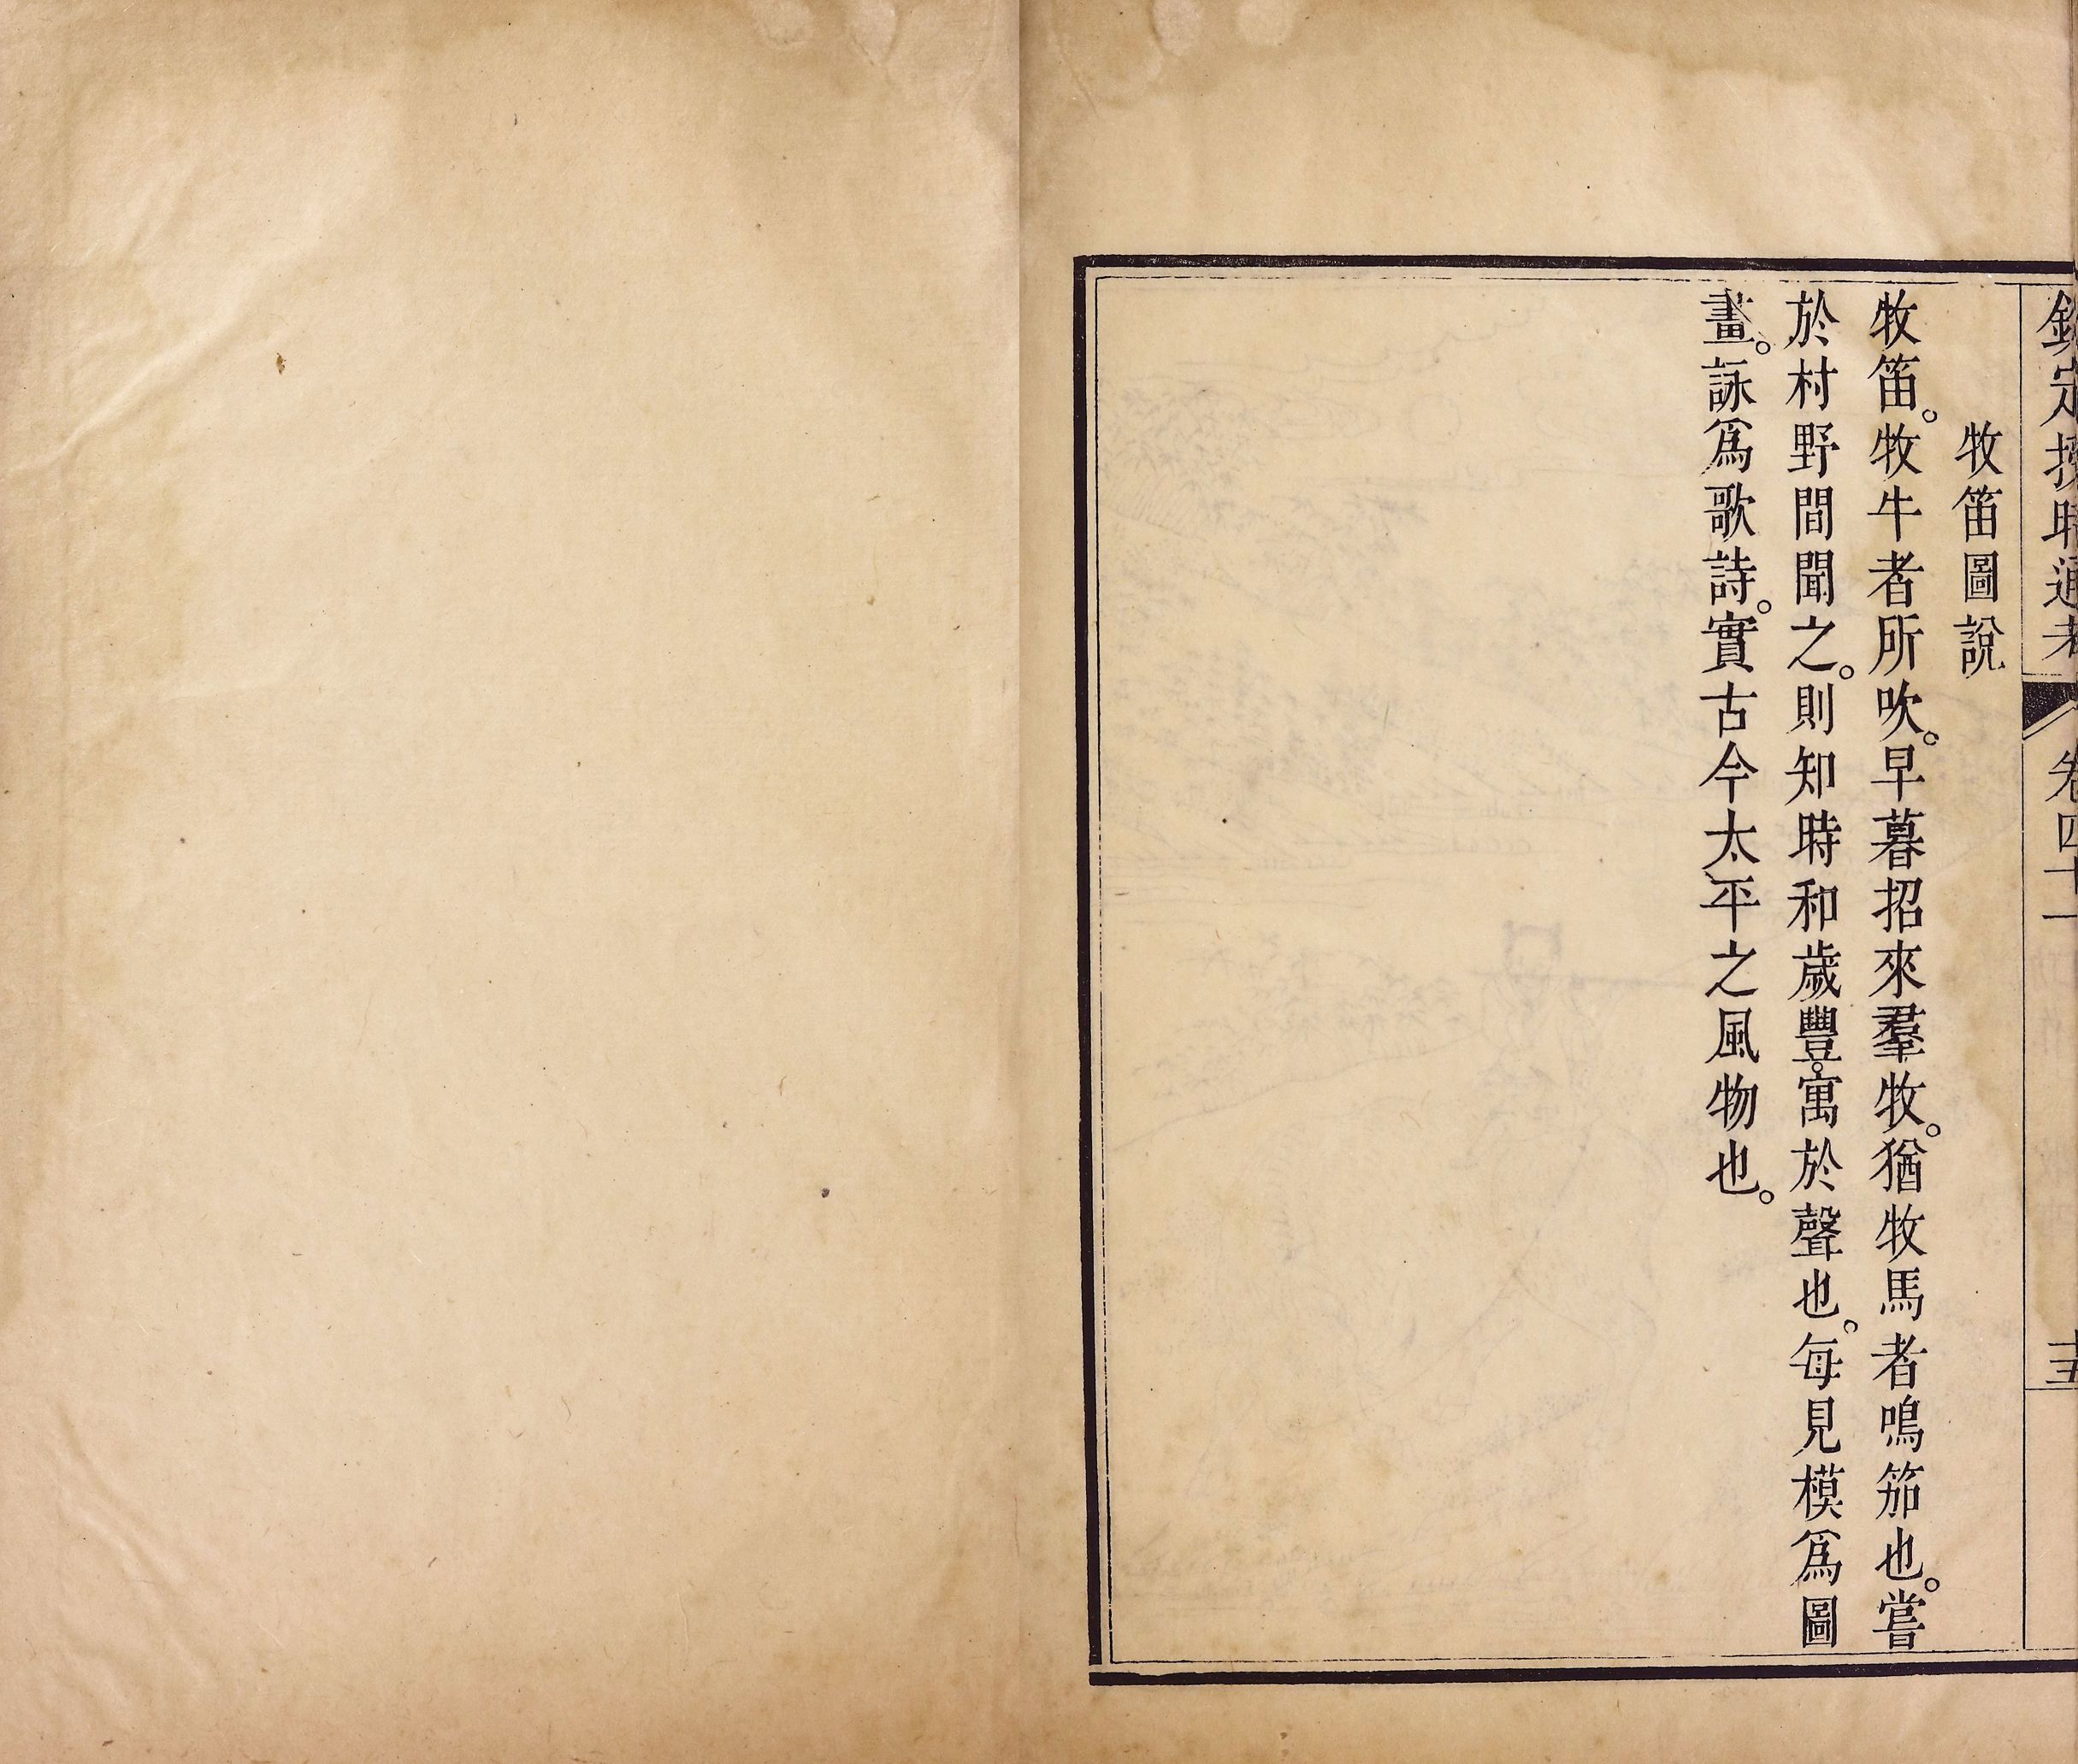 欽定授時通考 卷四十一 十五
牧笛圖說
牧笛。牧牛者所吹。早暮招來羣牧。猶牧馬者鳴笳也。嘗
於村野間聞之。則知時和歲豐。寓於聲也。每見模爲圖
畫。詠爲歌詩。實古今太平之風物也。